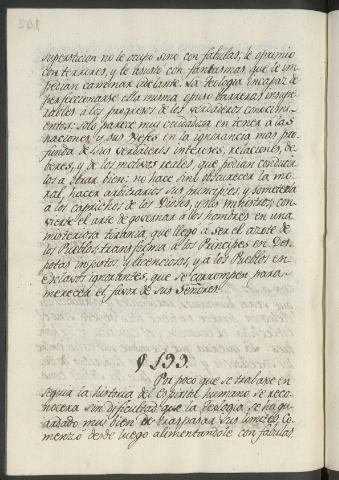 supersticion no le ocupó sino con fabulas, le oprimió
con terrores, y le asustó con fantasmas que le im-
pedian caminar adelante. La teologia incapaz de
perfeccionarse ella misma opuso barreras insupe-
rables á los progresos de los verdaderos conocimi-
entos: solo parece mui cuidadosa en tener á las
naciones y sus Xefes en la ignorancia mas pro-
funda de sus verdaderos intereses, relaciones, de-
beres, y de los motivos reales, que podian conducir-
los á obrar bien: no hace sino obscurecer la mo-
ral, hacer arbitrarios sus principios, y someterla
á los caprichos de los Dioses, y sus Ministros, con-
vierte el arte de governar á los hombres en una
misteriosa tirania, que llegó á ser el azote de
los Pueblos; transforma á los Principes en Des-
potas injustos, y licenciosos, y á los Pueblos en
Esclavos ignorantes, que se corrompen para
merecer el favor de sus Señores.
§ 199.
Por poco que se trabaxe en
seguir la historia del Espiritu humano se reco-
nocera sin dificultad que la teologia se ha gu-
ardado mui bien de traspasar sus limites. Co-
menzó desde luego alimentandole con fabulas,